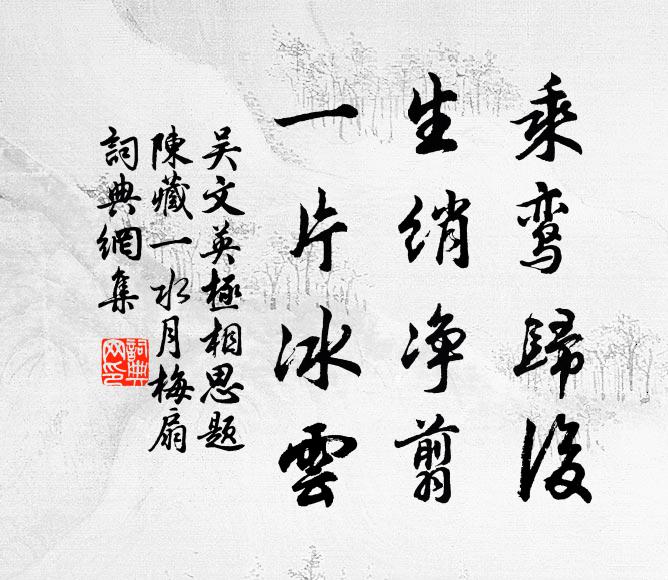 乘鸾歸後
生绡净翦
一片冰雲
吴文英極相思題
陳藏一水月梅扇
詞典網集
詞典
网印